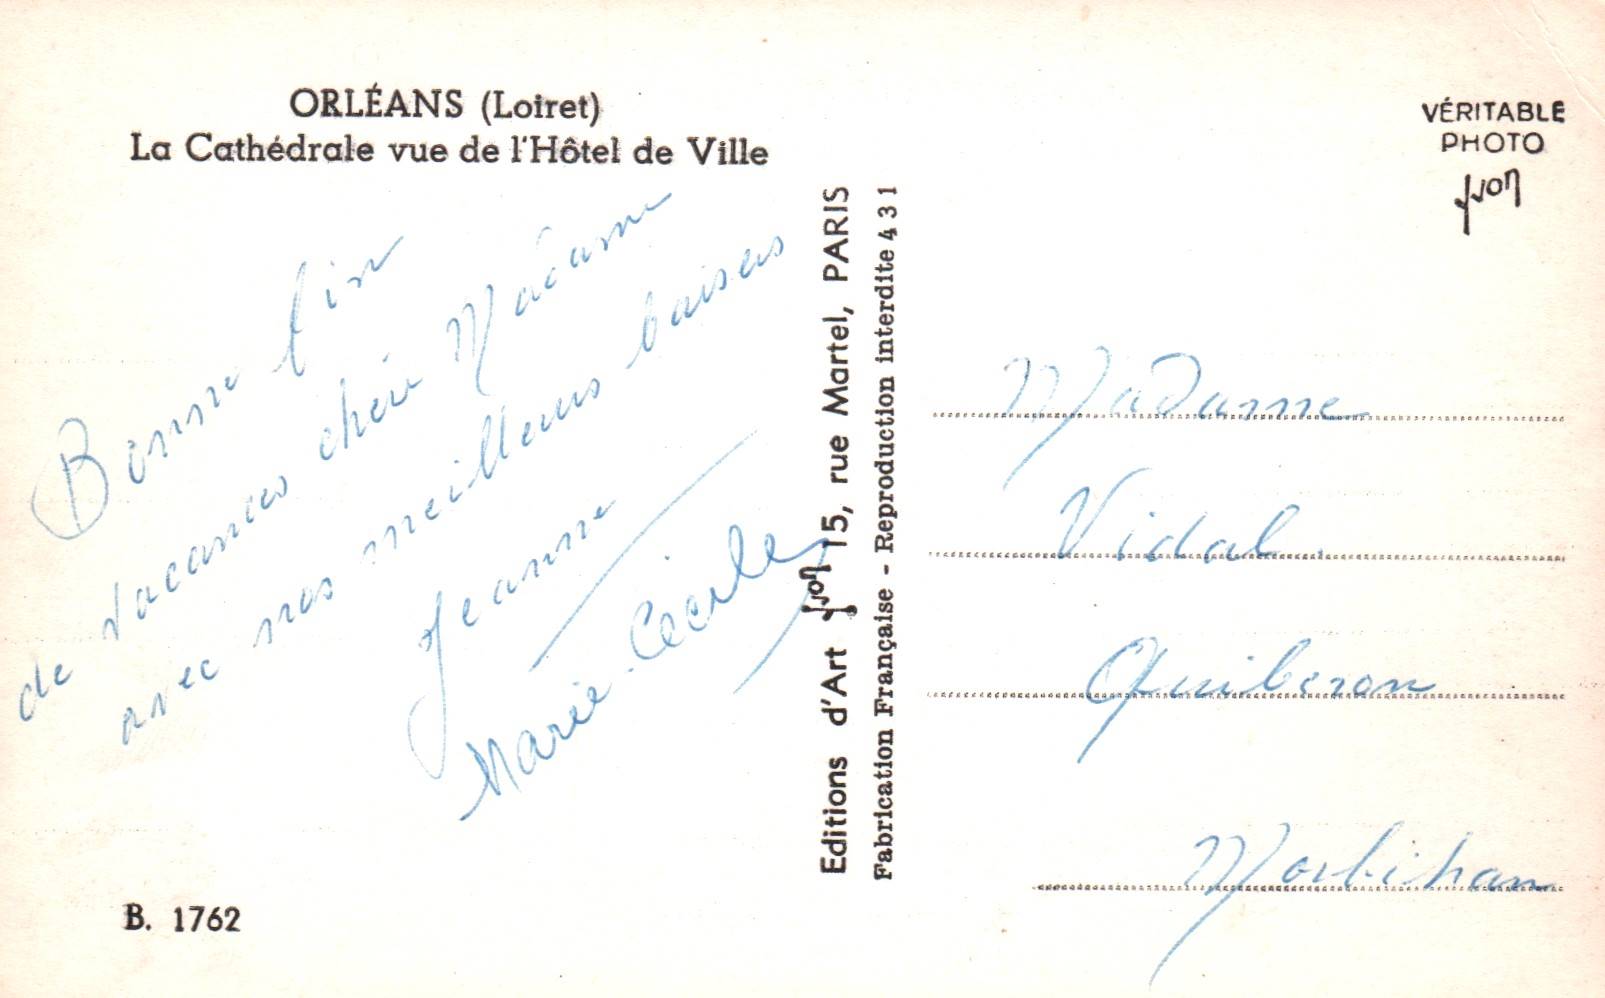 ORLÉANS (Loiret)
La Cathédrale vue de l'Hôtel de Ville
Bonne fin
de vacances chère Madame
avec nos meilleurs baisers
Jeanne
Marie-Cécile
B. 1762
Editions d'Art yvon 15, rue Martel, PARIS
Fabrication Française - Reproduction interdite 431
VÉRITABLE
PHOTO
yvon
Madame
Vidal.
Quiberon
Morbihan